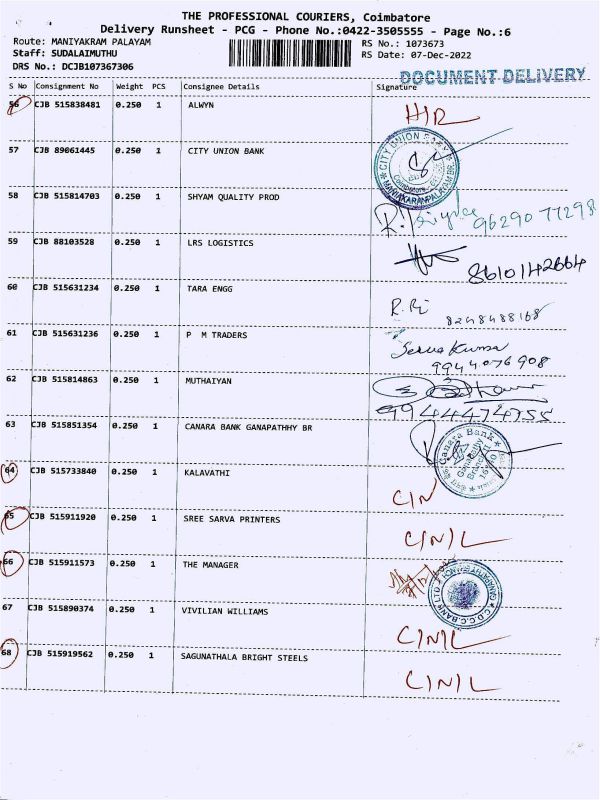 THE PROFESSIONAL COURIERS, Coimbatore
Delivery Runsheet - PCG - Phone No.:0422-3505555 - Page No.:6
Route: MANIYAKRAM PALAYAM
RS No.: 1073673
Staff: SUDALAIMUTHU
RS Date: 07-Dec-2022
DRS No.: DCJB107367306
DOCUMENT DELIVERY
S No Consignment No Weight PCS Consignee Details Signature
56 CJB 515838481 0.250 1 ALWYN
57 CJB 89061445 0.250 1 CITY UNION BANK
CITY UNION BANK
58 CJB 515814703 0.250 1 SHYAM QUALITY PROD
9629077298
59 CJB 88103528 0.250 1 LRS LOGISTICS
8610142664
60 CJB 515631234 0.250 1 TARA ENGG
8248488168
61 CJB 515631236 0.250 1 P M TRADERS
9944076908
62 CJB 515814863 0.250 1 MUTHAIYAN
63 CJB 515851354 0.250 1 CANARA BANK GANAPATHHY BR
Canara Bank
64 CJB 515733840 0.250 1 KALAVATHI
C/N
65 CJB 515911920 0.250 1 SREE SARVA PRINTERS
C/N/L
66 CJB 515911573 0.250 1 THE MANAGER
67 CJB 515890374 0.250 1 VIVILIAN WILLIAMS
C/N/L
68 CJB 515919562 0.250 1 SAGUNATHALA BRIGHT STEELS
C/N/L